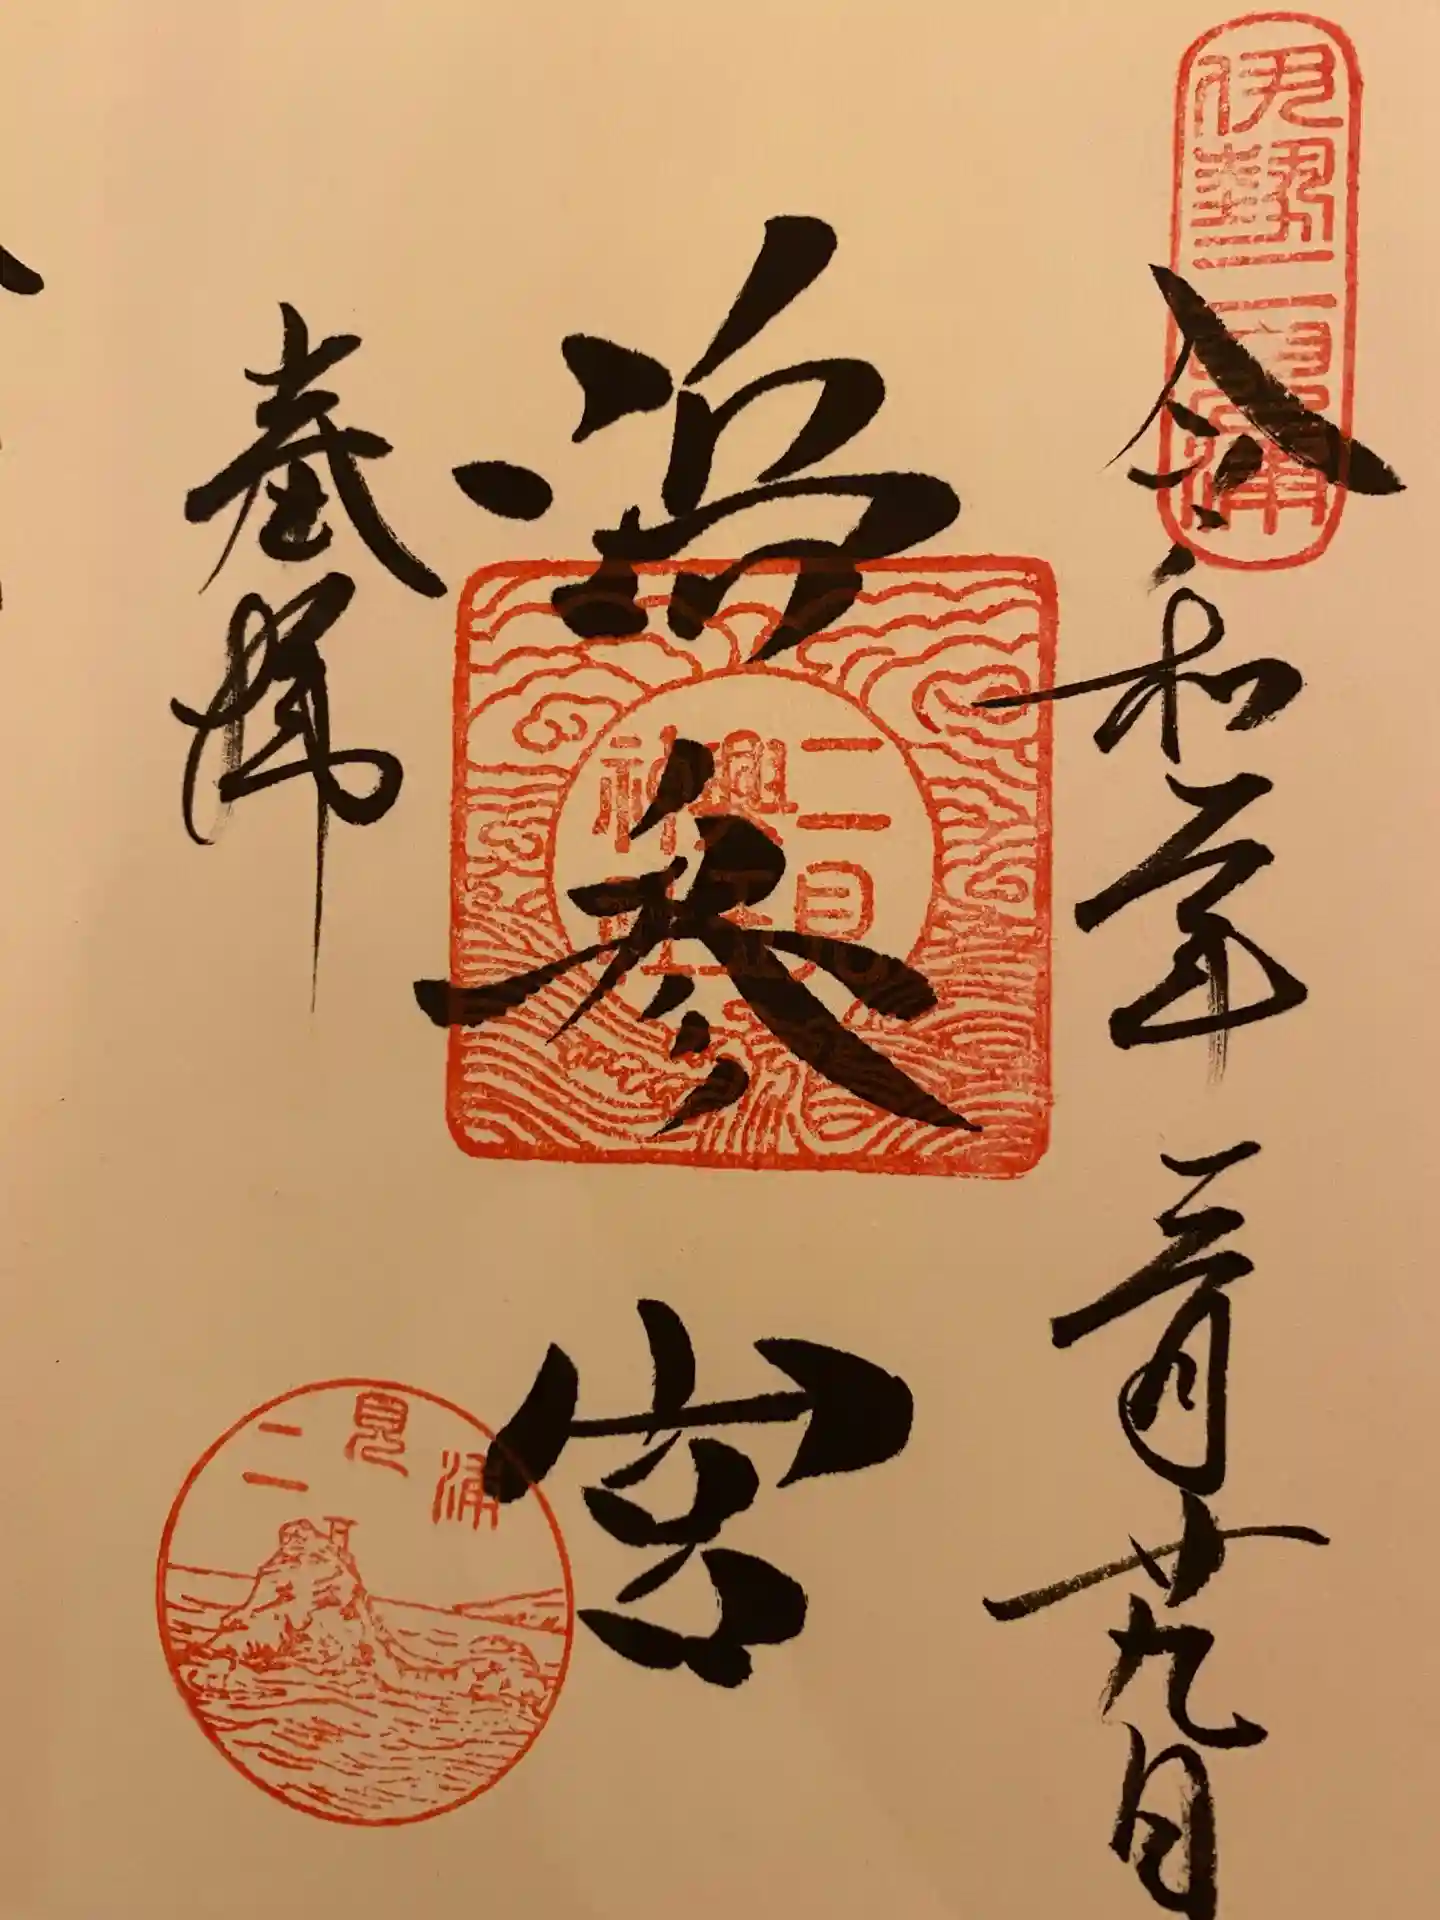 伊勢二見浦
令和年三月廿九日
浜参宮
二見
興玉
神社
奉拝
二見浦